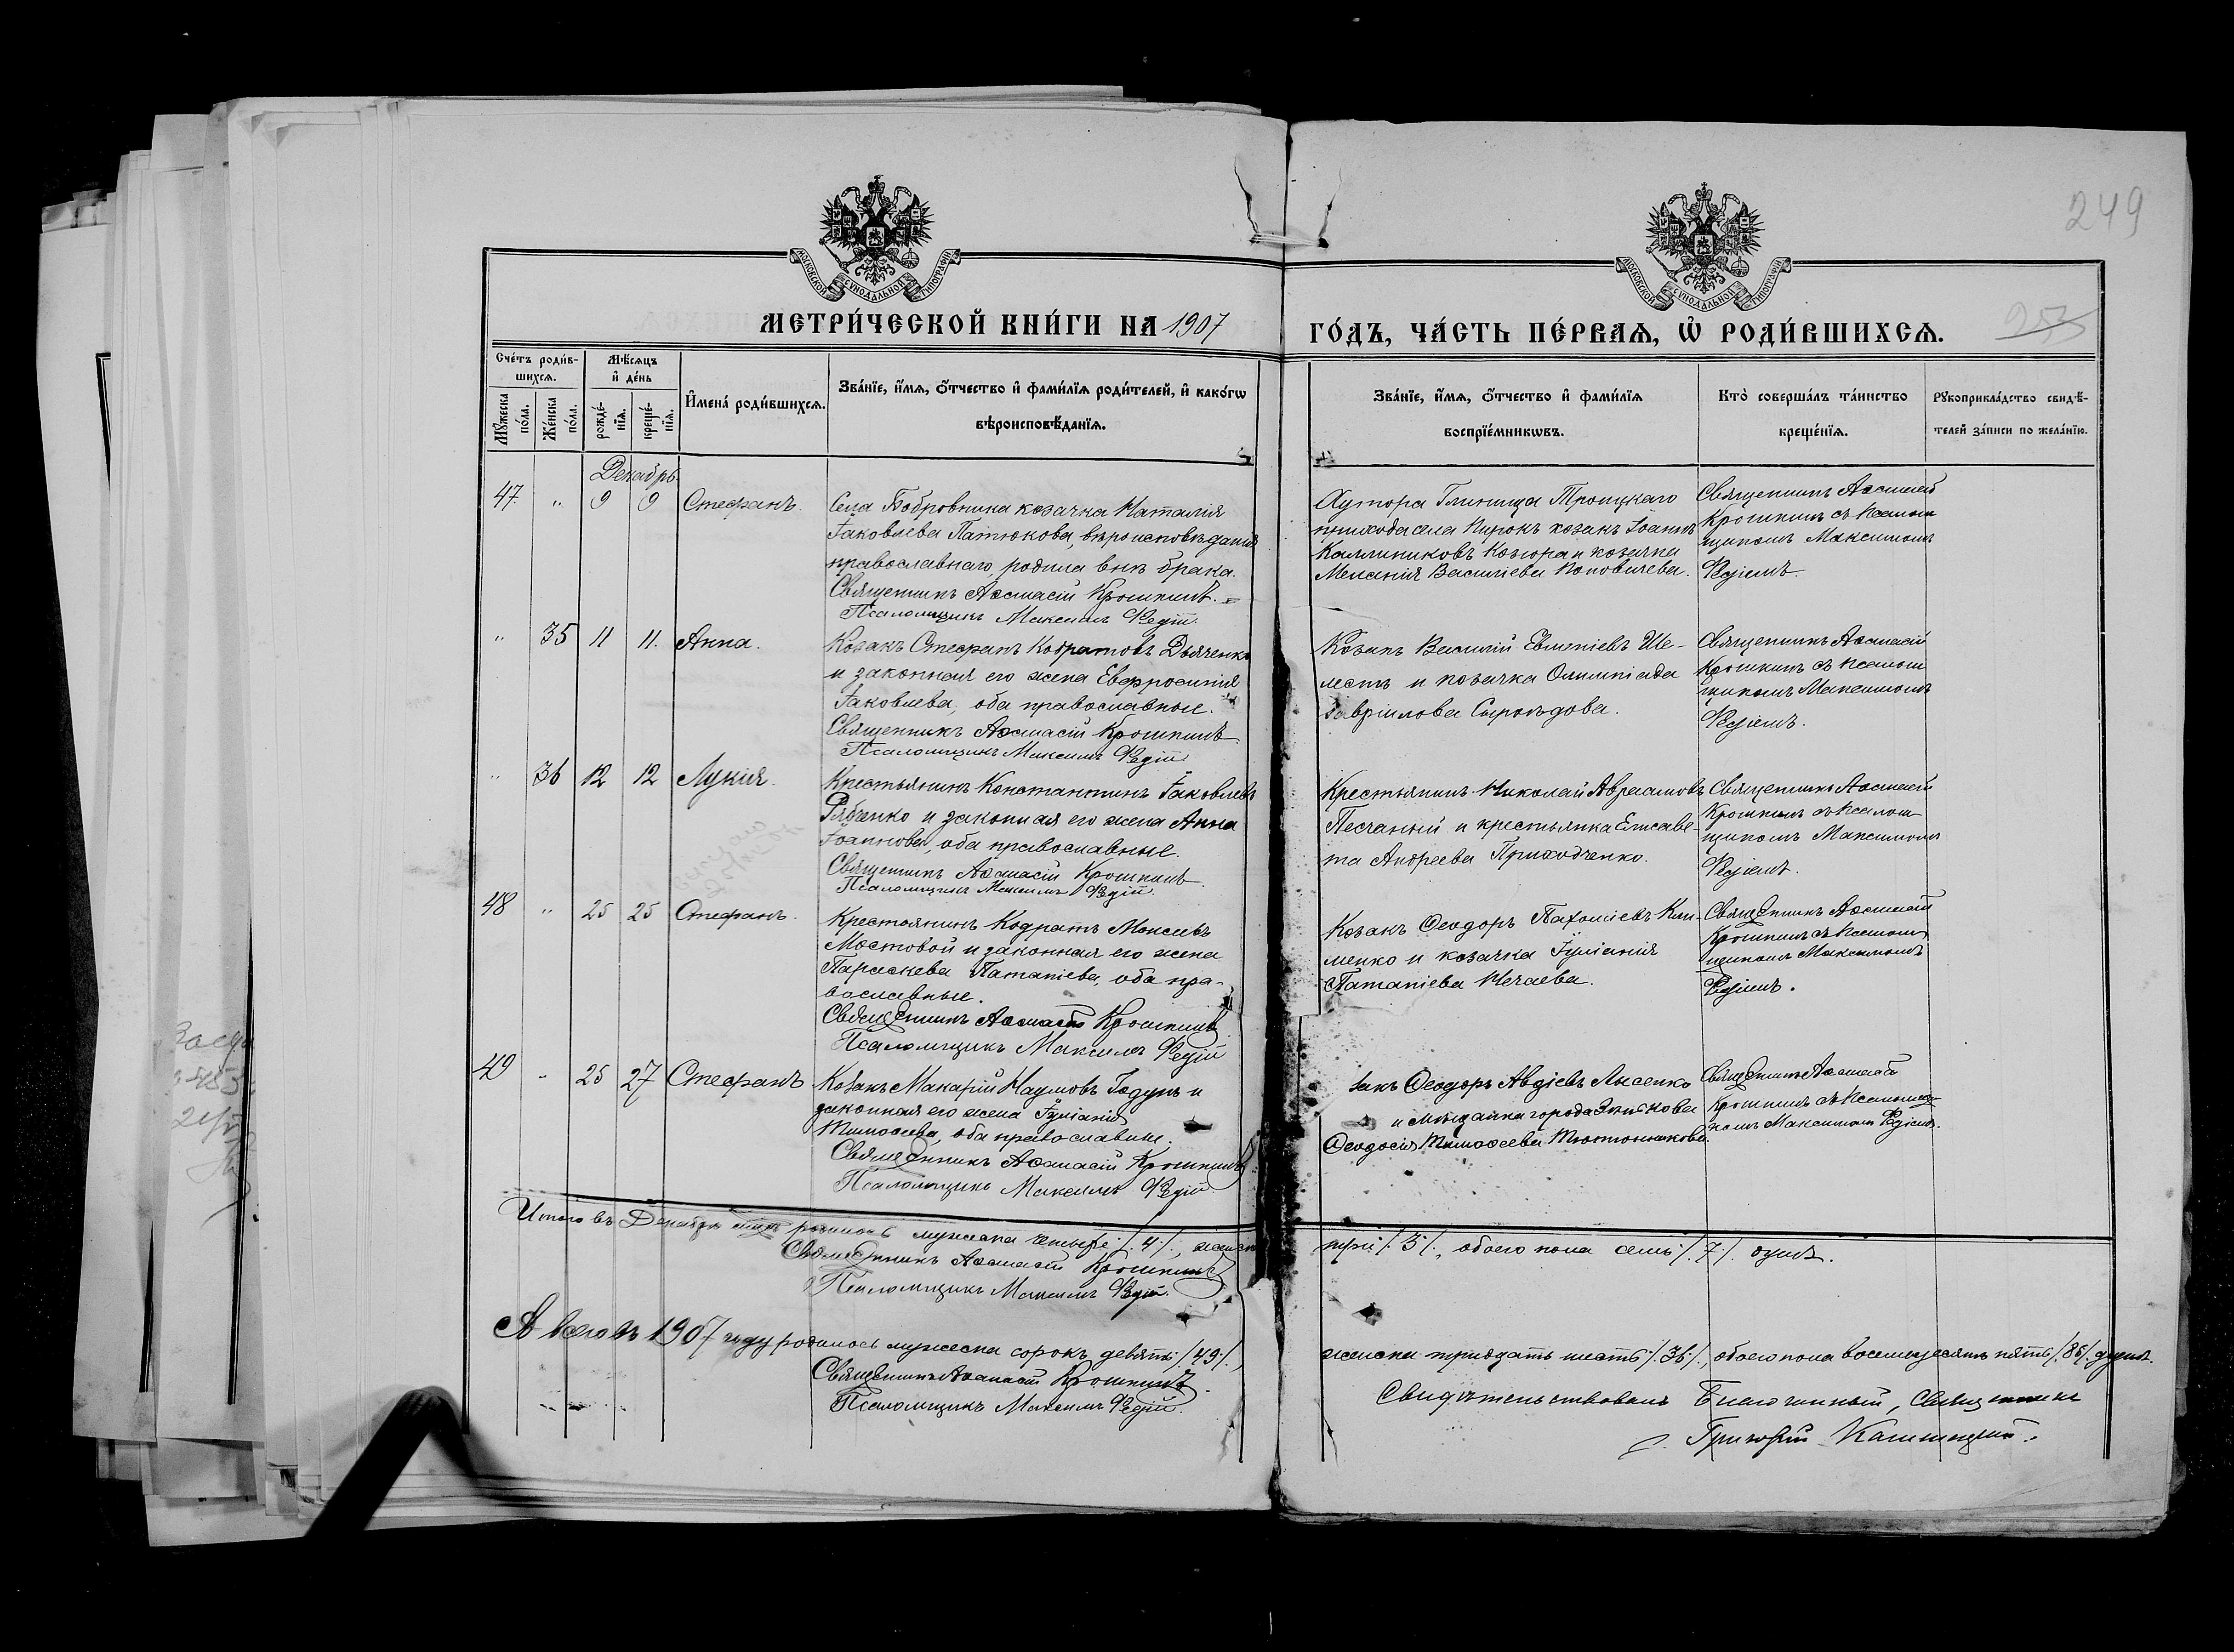 249
МОСКОВСКОЙ СУНОДАЛЬНОЙ ТИПОГРАФІИ
МОСКОВСКОЙ СУНОДАЛЬНОЙ ТИПОГРАФІИ
МЕТРИ́ЧЕСКОЙ КНИ́ГИ НА 1907
ГО́ДЪ, ЧА́СТЬ ПЕ́РВАѦ, Ѡ҆ РОДИ́ВШИХСѦ.
Сче́тъ роди́в-
шихсѧ.
Мѣ́сѧцъ
и҆ де́нь
Мꙋ́жеска по́ла.
Же́нска по́ла.
рожде́-
нїѧ.
креще́-
нїѧ.
И҆мена̀ роди́вшихсѧ.
Зва́нїе, и҆́мѧ, ѻ҆́тчество и҆ фами́лїѧ роди́телей, и҆ како́гѡ
вѣроисповѣ́данїѧ.
Зва́нїе, и҆́мѧ, ѻ҆́тчество и҆ фами́лїѧ
воспрїе́мникѡвъ.
Кто̀ соверша́лъ та́инство
креще́нїѧ.
Рꙋкоприкла́дство свидѣ́-
телей за́писи по жела́нїю.
Декабрь.
47. " 9 9 Стефанъ.
Села Бобровника козачка Наталія
Іаковлева Патюкова, вѣроисповѣданія
православнаго, родила внѣ брака.
Священникъ Аѳанасій Крошкинъ.
Псаломщикъ Максимъ Редій.
Хутора Глинища Троицкаго
прихода села Пирокъ козакъ Іоаннъ
Каллиниковъ Козюра и козачка
Меланія Василіева Поповичева.
Священникъ Аѳанасій
Крошкинъ съ псалом
щикомъ Максимомъ
Редіемъ.
" 35 11 11. Анна.
Козакъ Стефанъ Кодратовъ Дьяченко
и законная его жена Евфросинія
Іаковлева, оба православные.
Священникъ Аѳанасій Крошкинъ
Псаломщикъ Максимъ Редій
Козакъ Василій Евменіевъ Ше-
лесть и козачка Олимпіада
Гавріилова Сыроѣдова.
Священникъ Аѳанасій
Крошкинъ съ псалом
щикомъ Максимомъ
Редіемъ.
" 36 12 12 Лукія.
Крестьянинъ Константинъ Іаковлевъ
Рябченко и законная его жена Анна
Іоаннова, оба православные.
Священникъ Аѳанасій Крошкинъ
Псаломщикъ Максимъ Редій.
Крестьянинъ Николай Авраамовъ
Песчаный и крестьянка Елисаве-
та Андреева Приходченко.
Священникъ Аѳанасій
Крошкинъ съ псалом
щикомъ Максимомъ
Редіемъ.
48 " 25 25 Стефанъ.
Крестьянинъ Кодратъ Моисеевъ
Мостовой и законная его жена
Параскева Патапіева, оба пра-
вославные.
Священникъ Аѳанасій Крошкинъ
Псаломщикъ Максимъ Редій
Козакъ Ѳеодоръ Пахоміевъ Кли-
менко и козачка Іуліанія
Патапіева Нечаева.
Священникъ Аѳанасій
Крошкинъ съ псалом
щикомъ Максимомъ
Редіемъ.
49 " 25 27 Стефанъ
Козакъ Макарій Наумовъ Годунъ и
законная его жена Іуліанія
Тимоѳеева, оба православные.
Священникъ Аѳанасій Крошкинъ
Псаломщикъ Максимъ Редій
закъ Ѳеодоръ Авдіевъ Лысенко
и мѣщанка города Зинькова
Ѳеодосія Тимоѳеева Тютюнникова.
Священникъ Аѳанасій
Крошкинъ съ псаломщи-
комъ Максимомъ Редіемъ.
Итого въ Декабрѣ мѣс. родилось мужеска четыре /.4./., женска три /.3./., обоего пола семь /.7./. душъ.
Священникъ Аѳанасій Крошкинъ
Псаломщикъ Максимъ Редій.
А всего въ 1907 году родилось мужеска сорокъ девять /.49./., женска тридцать шесть /.36./., обоего пола восемьдесятъ пять /.85./. душъ.
Священникъ Аѳанасій Крошкинъ.
Псаломщикъ Максимъ Редій.
Свидѣтельствовалъ Благочинный, Священникъ
Григорій